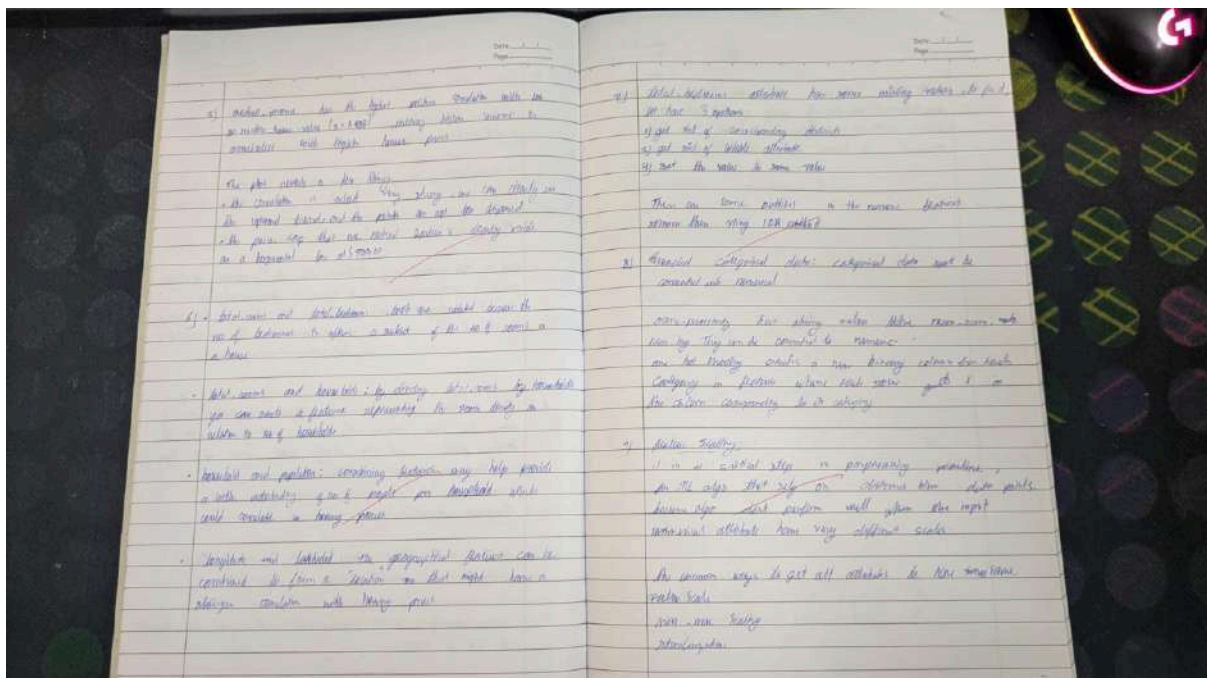 Date
Page
5) median_income has the highest positive correlation with
median house value meaning higher income is
associated with higher house prices
The plot reveals a few things
• the correlation is indeed very strong, we can clearly see
the upward trend and the points are not too dispersed
• the price cap that we noticed earlier is clearly visible
as a horizontal line at
6) • total_rooms and total_bedrooms: both are related because the
no of bedrooms is often a subset of the no of rooms in
a house
• total_rooms and households: by dividing total_rooms by households
you can create a feature representing the room density in
relation to no of households
• household and population: combining may help provide
a of no of people per household which
could correlate in housing prices
• longitude and latitude: the geographical features can be
combined to form a "location" that might have a
stronger correlation with housing prices
Date
Page
7) total_bedrooms attribute has some missing values, to
we have 3 options
1) get rid of corresponding districts
2) get rid of whole attribute
3) set the value to some value
There are some outliers in the numeric features
remove them using IQR method
8) categorical data: categorical data must be
converted into numerical
ocean_proximity has string values
they can be converted to numeric
one hot encoding creates a new binary column for each
category in feature where each row gets 1 in
the column corresponding to its category
9) feature Scaling:
it is a critical step in preprocessing pipeline,
for ML algo that rely on distance btw data points
because algo don't perform well when the input
numerical attributes have very different scales
Two common ways to get all attributes to have same
scale
min-max scaling
standardization